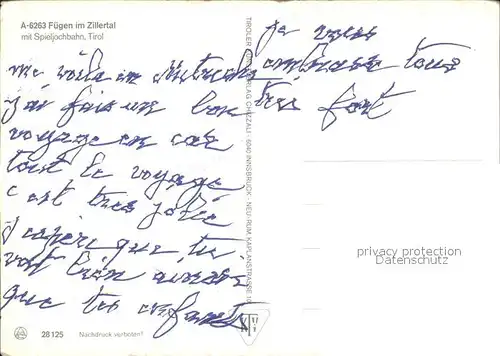 A-6263 Fügen im Zillertal
mit Spieljochbahn, Tirol
me voila en Autriche
j'ai fais un bon
voyage en car
tout le voyage
c est tres jolie
j'espère que tu
vas bien
que tes enfants
je vous
embrasse tous
tres fort
TIROLER VERLAG CHIZZALI · 6040 INNSBRUCK · NEU-RUM KAPLANSTRASSE
privacy protection
Datenschutz
28125
Nachdruck verboten!